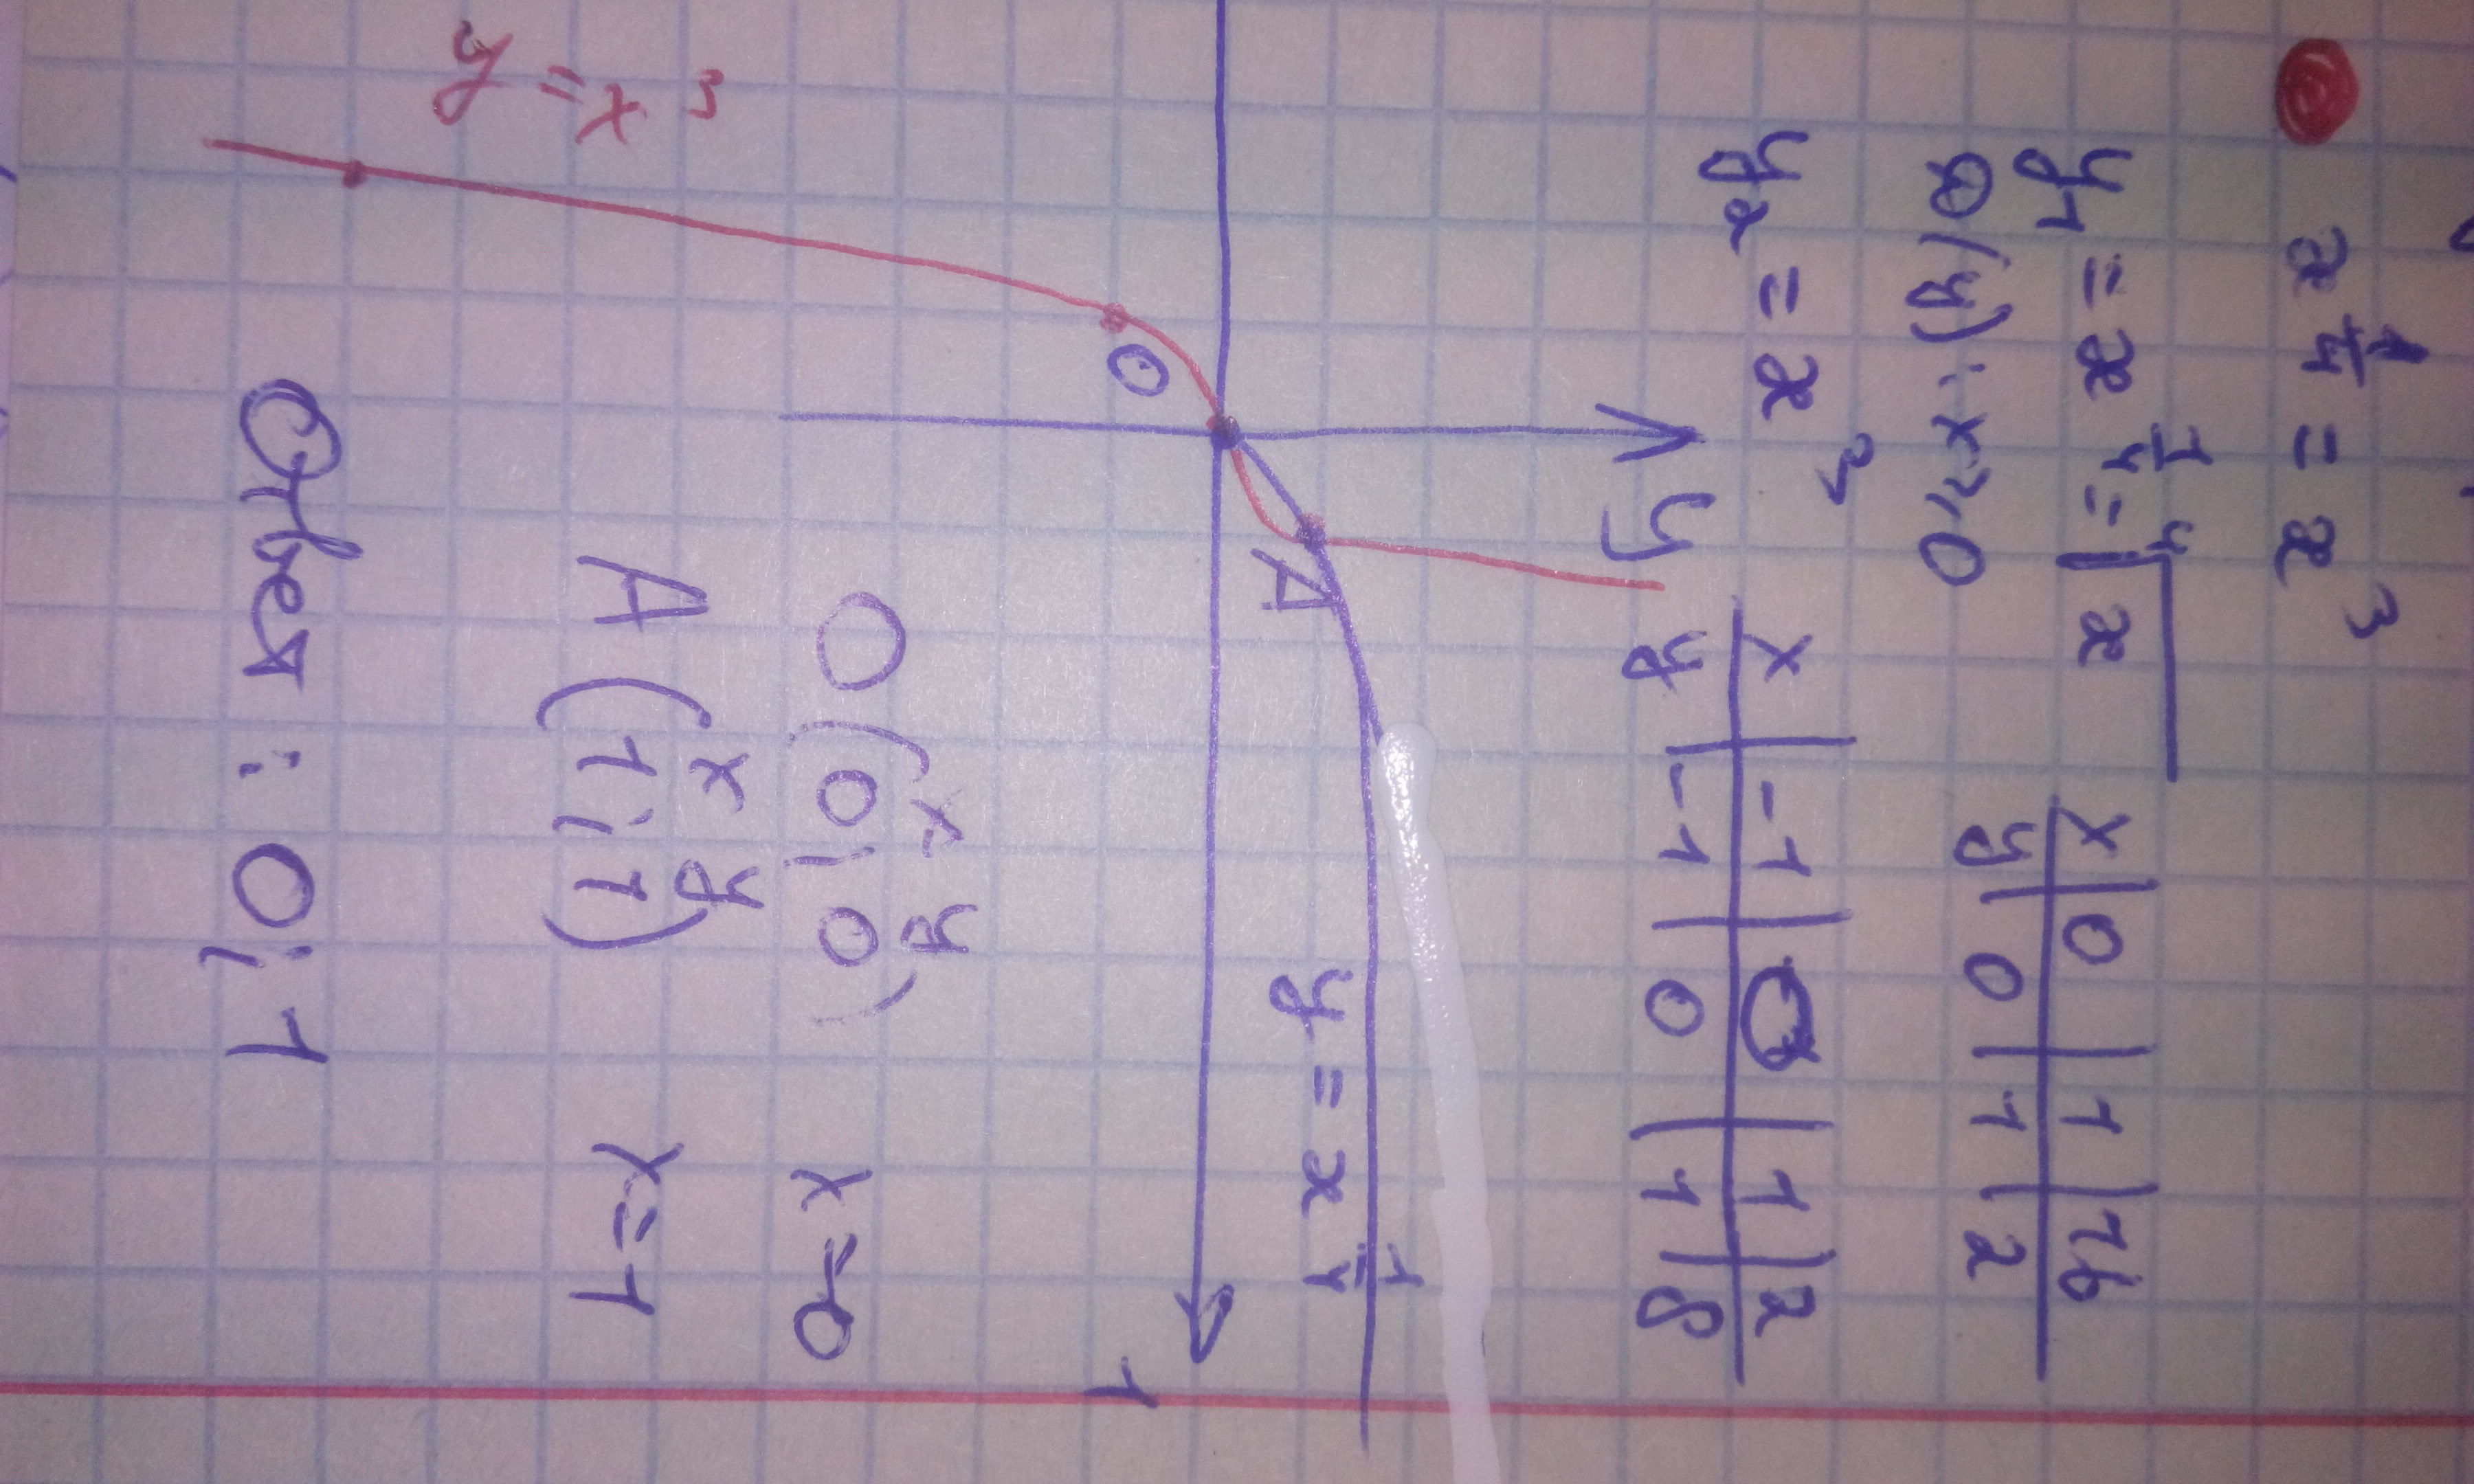 x^{1/4} = x^3
y_1 = x^{1/4} = \sqrt[4]{x}
D(y): x ≥ 0
x | 0 | 1 | 16
y | 0 | 1 | 2
y_2 = x^3
x | -1 | 0 | 1 | 2
y | -1 | 0 | 1 | 8
y
A
y = x^{1/4}
O
O(0;0) x y
x=0
A(1;1) x y
x=1
y = x^3
Ответ: 0; 1